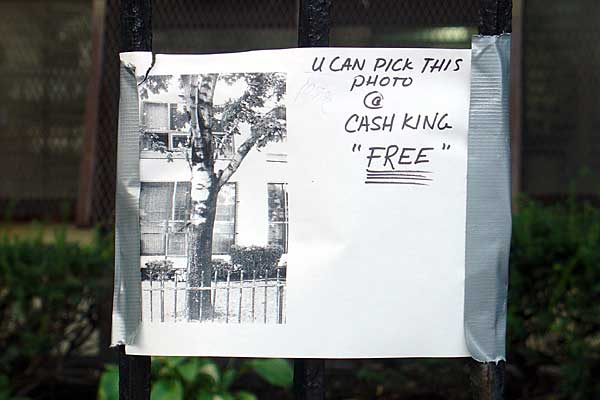 U CAN PICK THIS
PHOTO
@
CASH KING
"FREE"